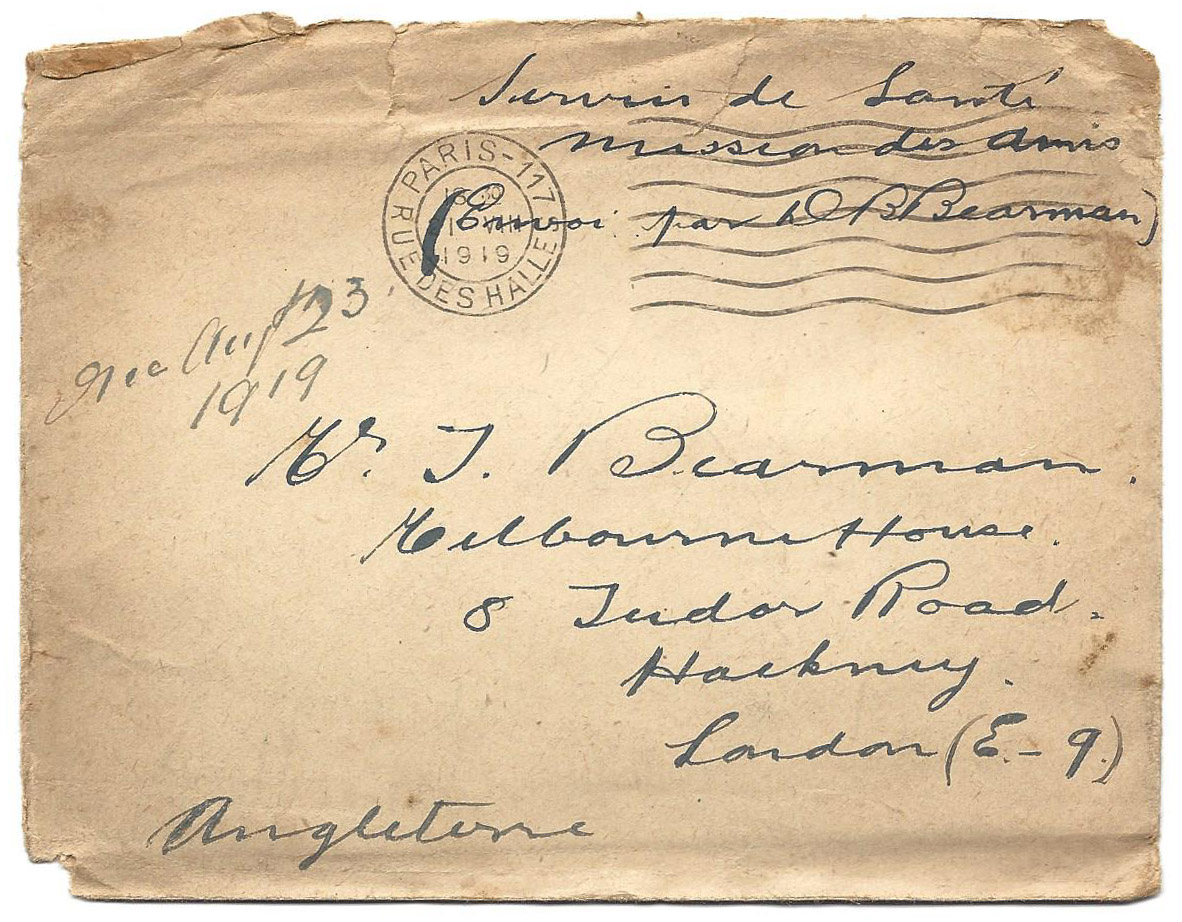 Service de Santé
Mission des Amis
(Envoi par D B Bearman)
PARIS-117
RUE DES HALLES
1919
Rec Aug 23
1919
Mr. T. Bearman.
Melbourne House.
8 Tudor Road.
Hackney.
London (E-9.)
Angleterre